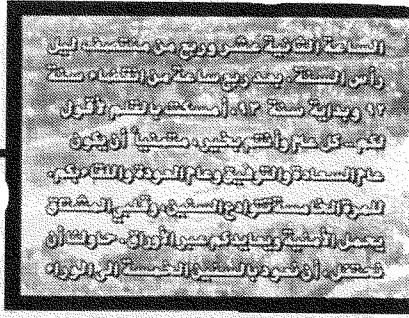 الساعة الثانية عشر وربع من منتصف ليل
رأس السنة، بعد ربع ساعة من إنقضاء سنة
٩٢ وبداية سنة ٩٣، أمسكت بالقلم لأقول
لكم.. كل عام وأنتم بخير، متمنياً أن يكون
عام السعادة والتوفيق وعام العودة واللقاء بكم.
للمرة الخامسة تتوادع السنين، وقلبي المشتاق
يحمل الأمنية ويعايدكم عبر الأوراق. حاولت أن
نحتفل، أن نعود بالسنين الخمسة الى الوراء